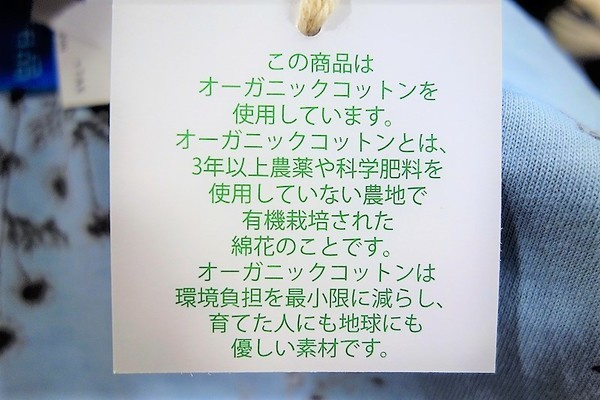 この商品は
オーガニックコットンを
使用しています。
オーガニックコットンとは、
3年以上農薬や科学肥料を
使用していない農地で
有機栽培された
綿花のことです。
オーガニックコットンは
環境負担を最小限に減らし、
育てた人にも地球にも
優しい素材です。